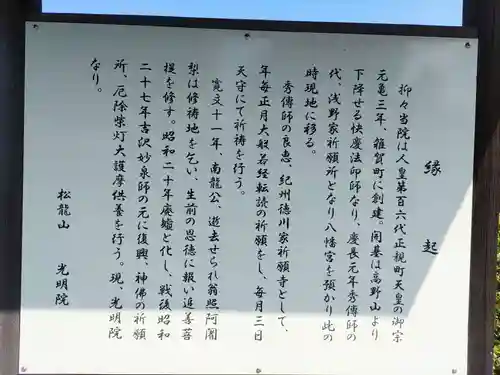 縁起
抑々当院は人皇第百六代正親町天皇の御宗
元亀三年、雑賀町に創建。開基は高野山より
下降せる快慶法印師なり、慶長元年秀傳師の
代、浅野家祈願所となり八幡宮を預かり此の
時現地に移る。
秀傳師の良恵、紀州徳川家祈願寺として、
年毎正月大般若経転読の祈願をし、毎月三日
天守にて祈祷を行う。
寛文十一年、南龍公、逝去せられ翁照阿闍
梨は修祷地を乞い、生前の恩徳に報い追善菩
提を修す。昭和二十年廃墟と化し、戦後昭和
二十七年吉沢妙泉師の元に復興、神佛の祈願
所、厄除柴灯大護摩供養を行う。現、光明院
なり。
松龍山　光明院